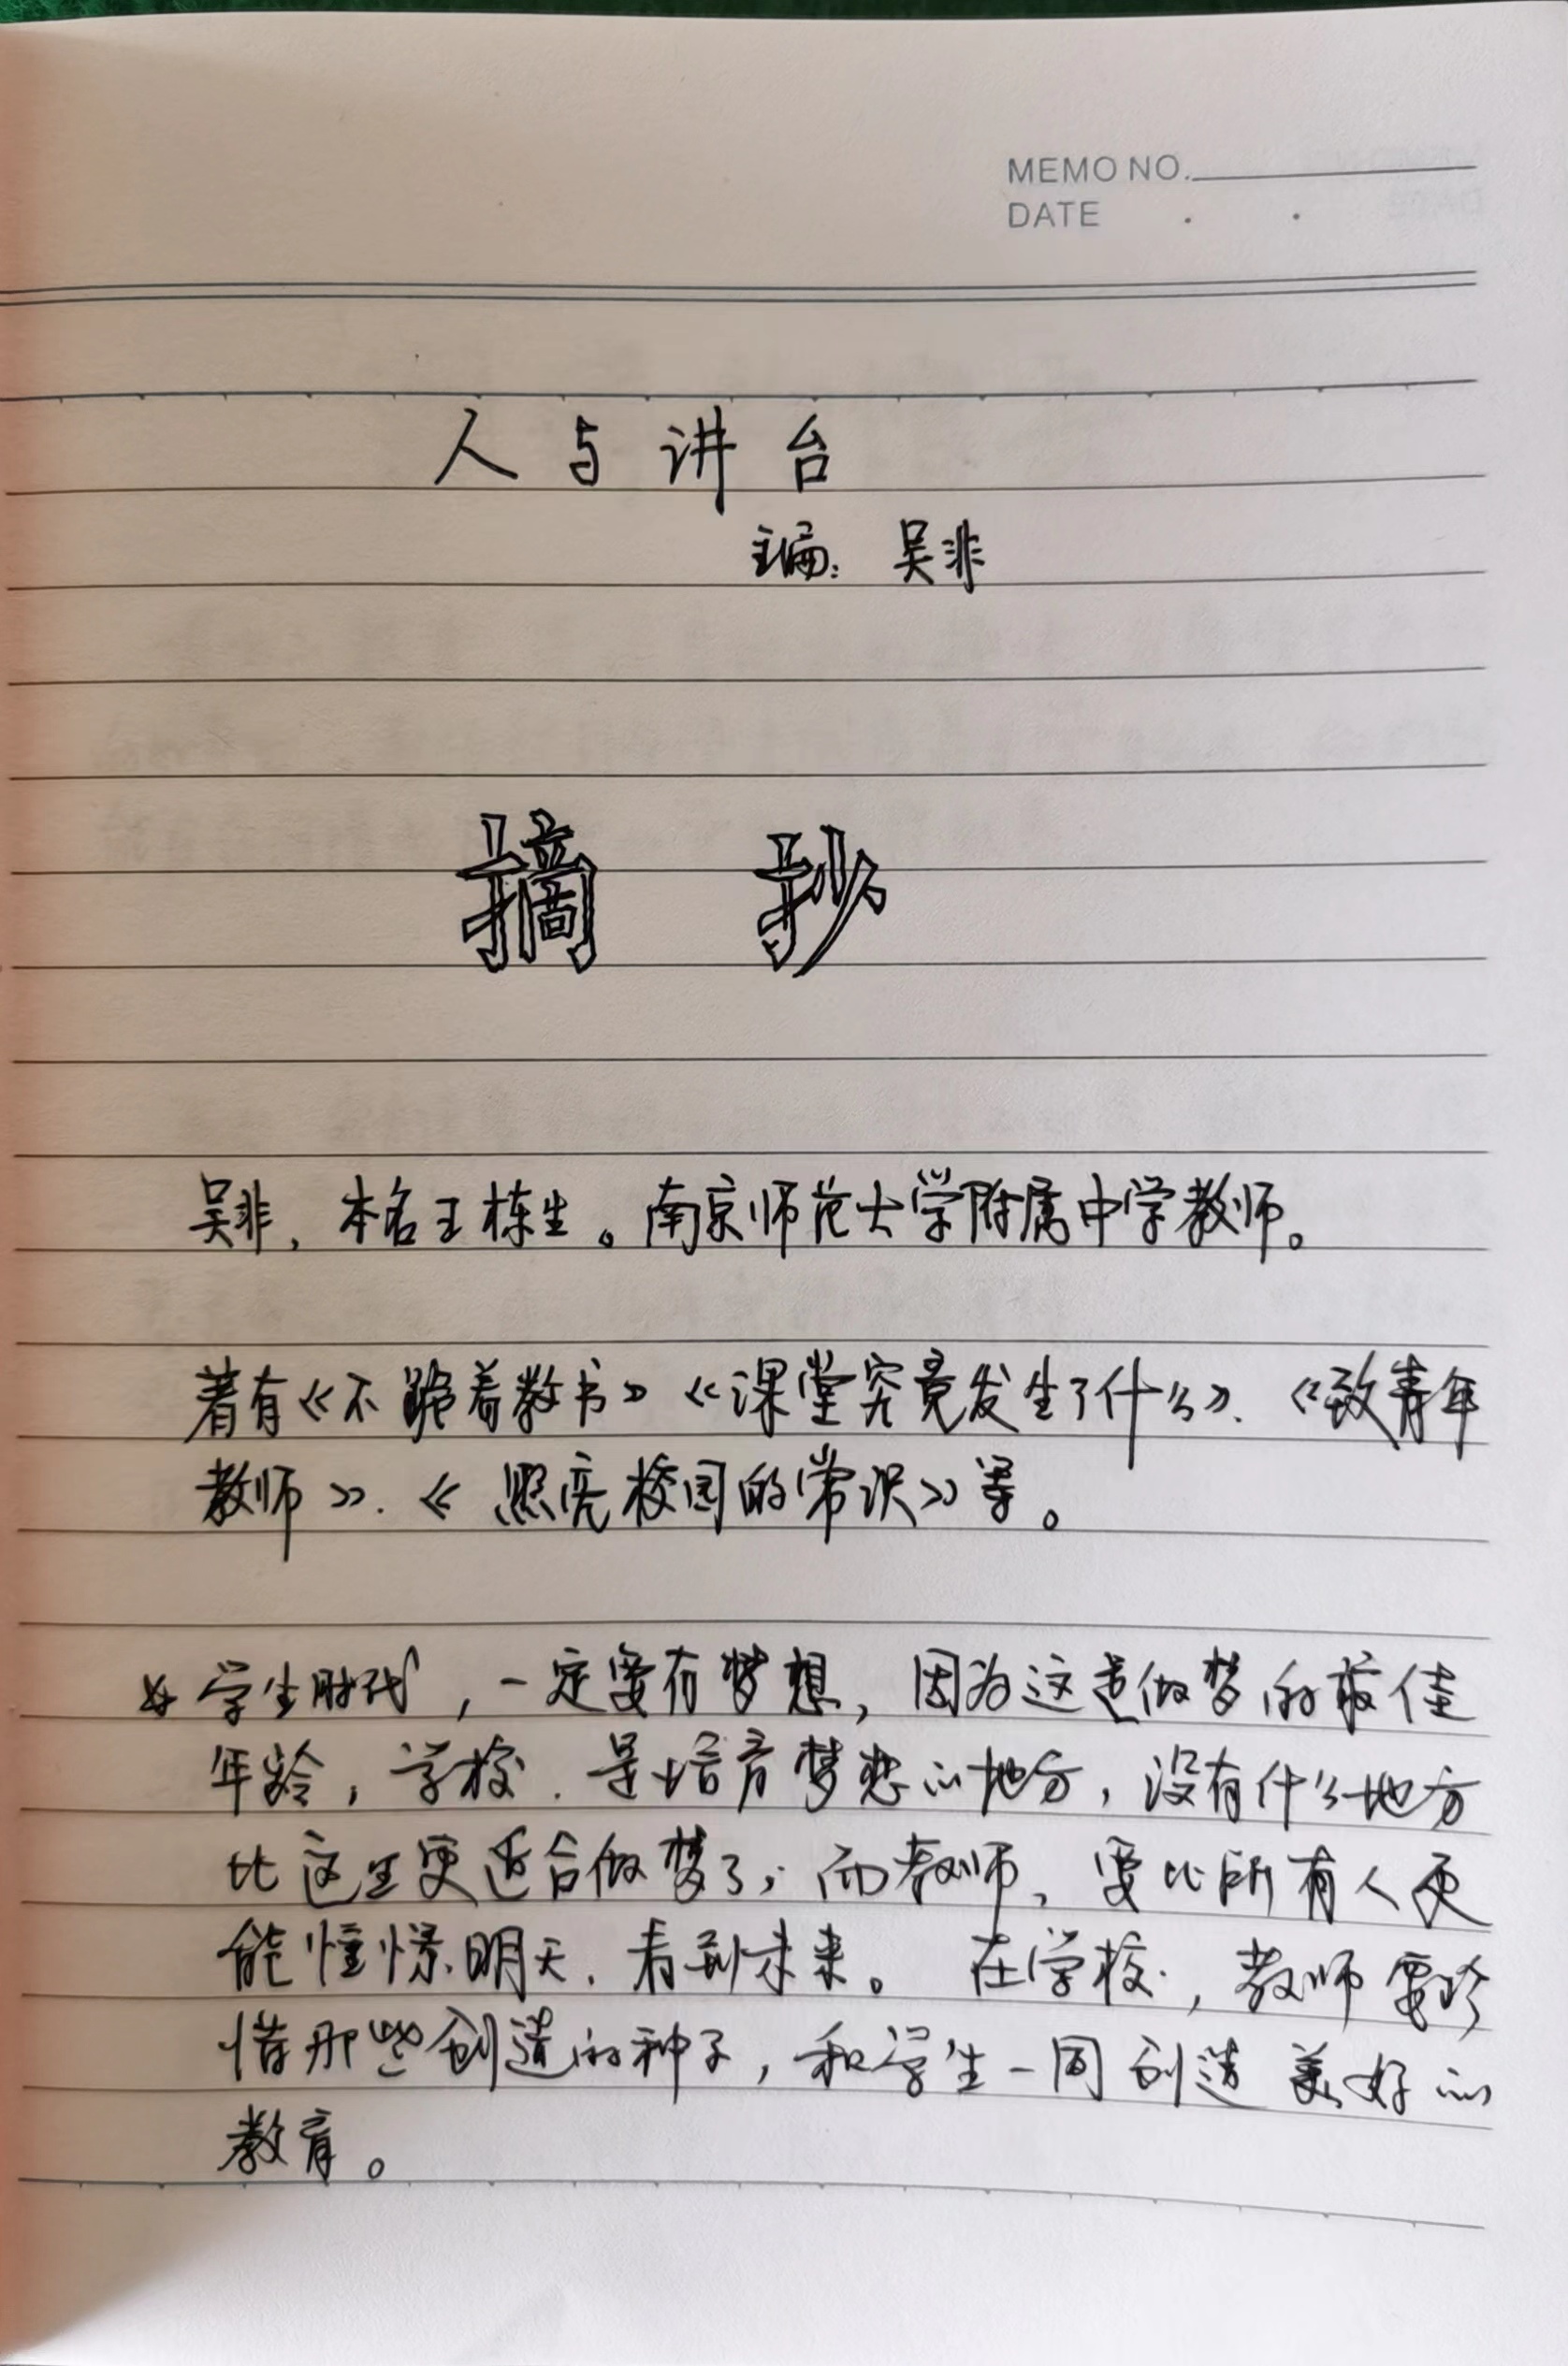 MEMO NO.
DATE . .
人与讲台
主编：吴非
摘 抄
吴非，本名王栋生。南京师范大学附属中学教师。
著有《不跪着教书》《课堂究竟发生了什么》、《致青年
教师》、《照亮校园的常识》等。
学生时代，一定要有梦想，因为这是做梦的最佳
年龄，学校、是培育梦想的地方，没有什么地方
比这里更适合做梦了；而教师，要比所有人更
能憧憬明天、看到未来。在学校，教师要珍
惜那些创造的种子，和学生一同创造美好的
教育。